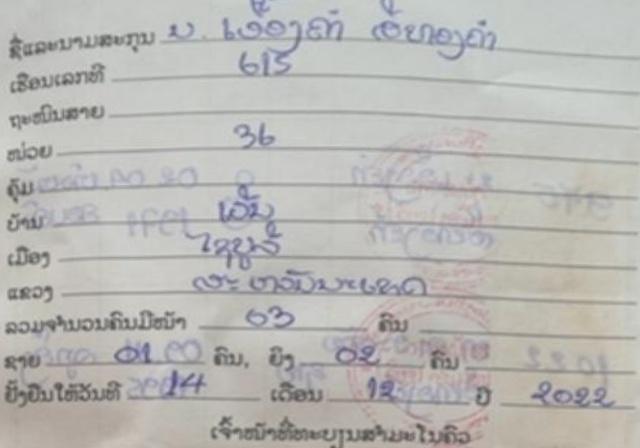 ຊື່ແລະນາມສະກຸນ ນ.
ເຮືອນເລກທີ 615
ຖະໜົນສາຍ
ໜ່ວຍ 36
ຄຸ້ມ
ບ້ານ
ເມືອງ ໄຊບູລີ
ແຂວງ ສະຫວັນນະເຂດ
ລວມຈຳນວນຄົນມີໜ້າ 03 ຄົນ
ຊາຍ 01 ຄົນ, ຍິງ 02 ຄົນ
ຢັ້ງຢືນໃຫ້ວັນທີ 14 ເດືອນ 12 ປີ 2022
ເຈົ້າໜ້າທີ່ທະບຽນສຳມະໂນຄົວ